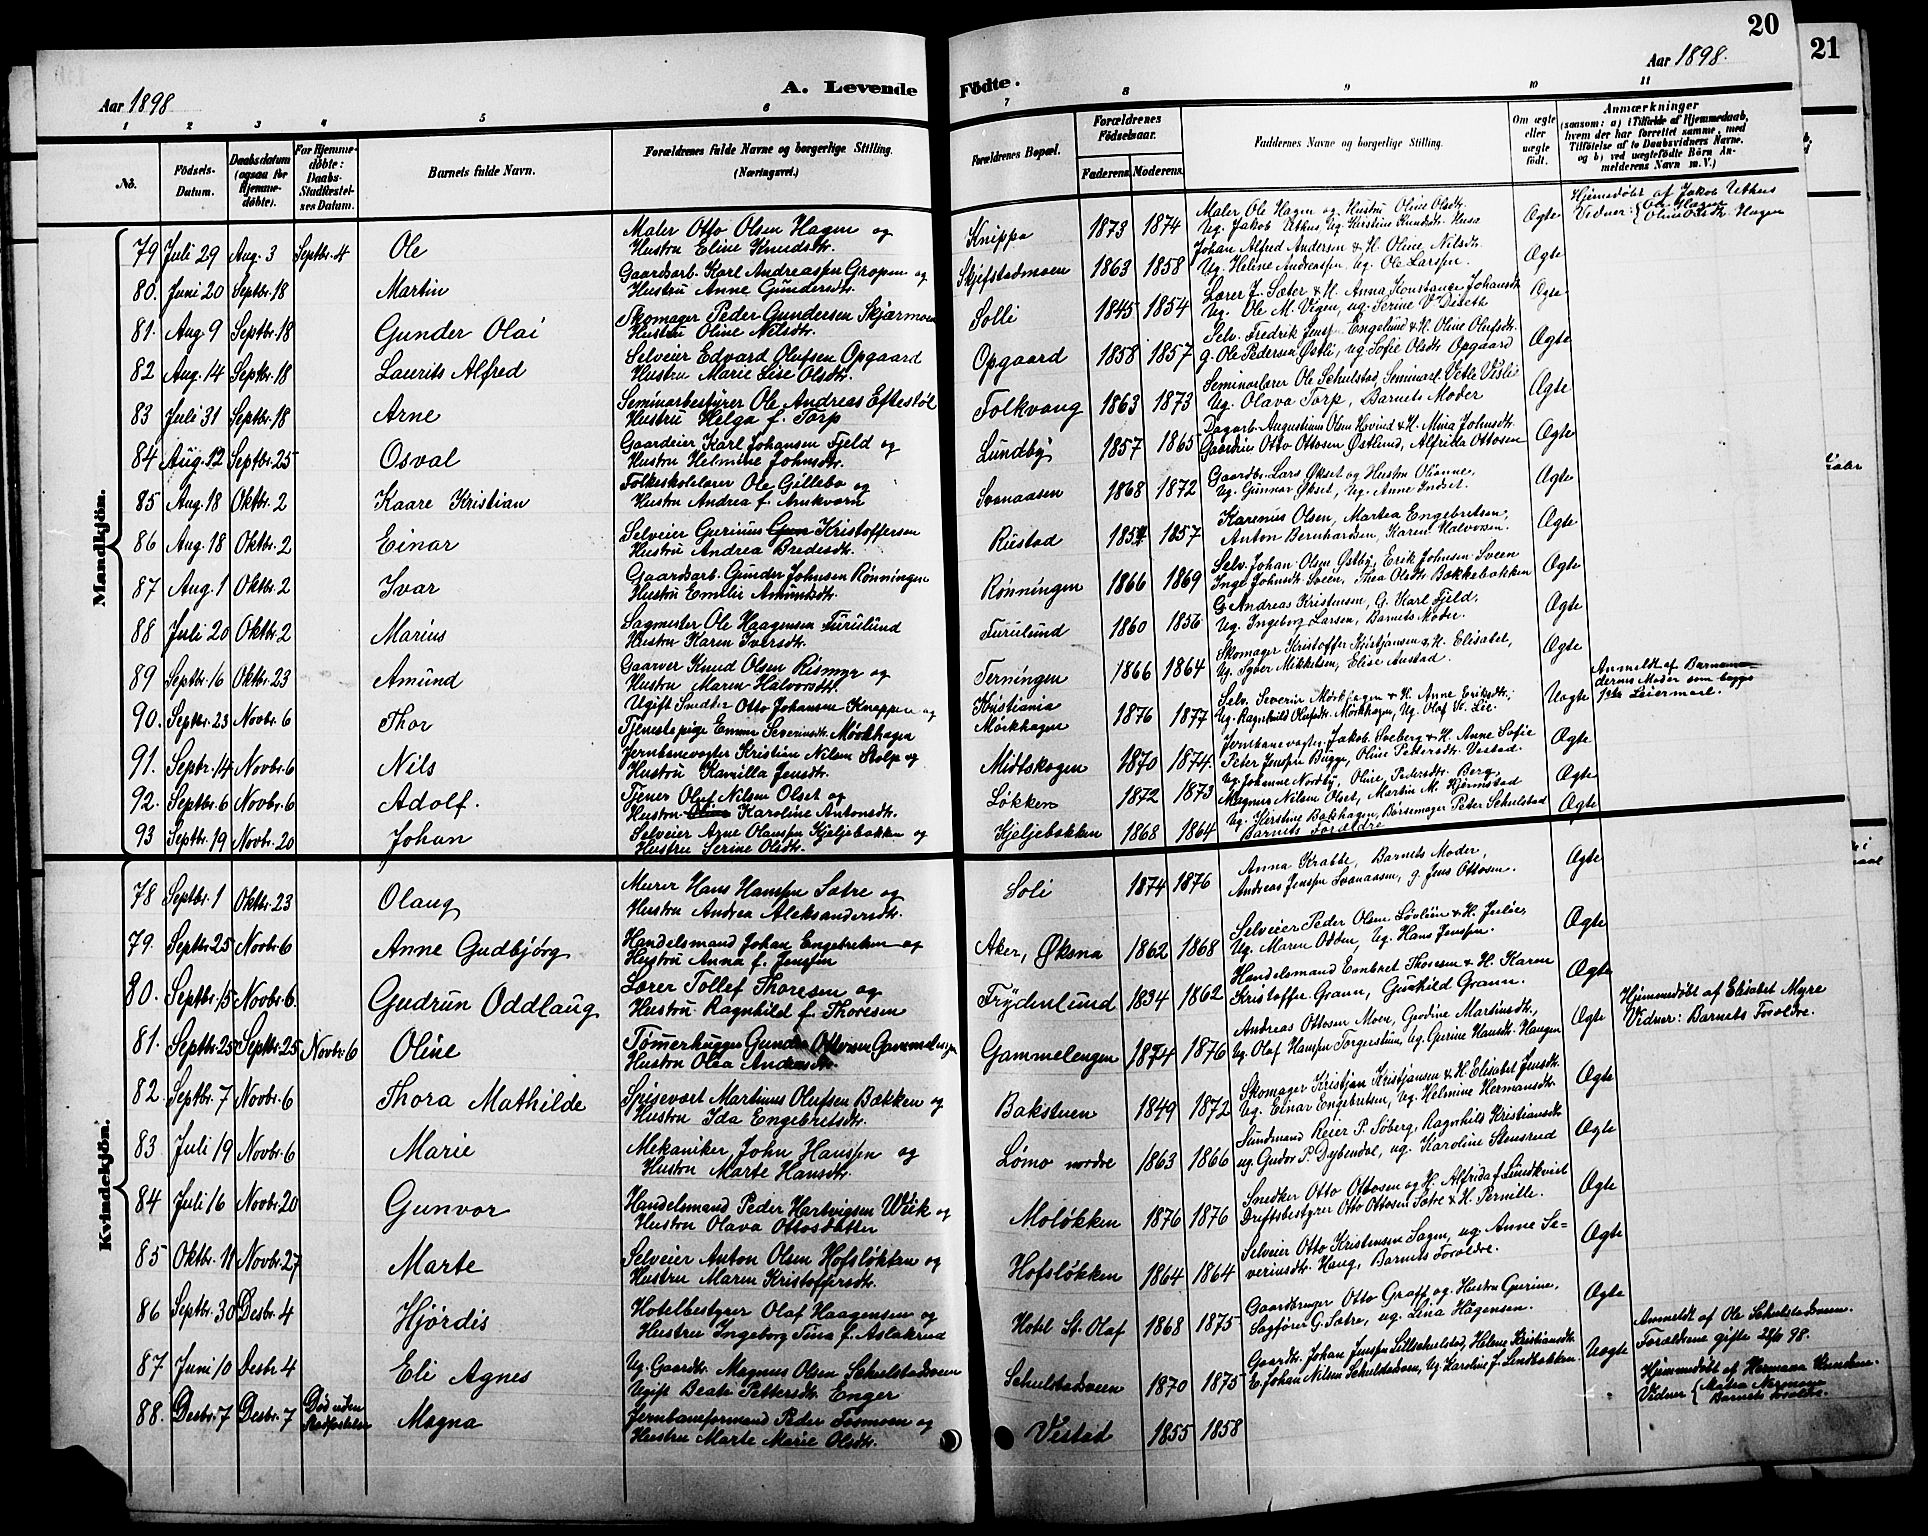 20
21
Aar 1898
A. Levende
Födte.
Aar 1898.
1 2 3 4 5 6 7 8 9 10 11
No.
Födsels-Datum.
Daabsdatum (ogsaa for Hjemme-döbte).
For Hjemme-döbte: Daabs-Stadfæstel-ses Datum.
Barnets fulde Navn.
Forældrenes fulde Navne og borgerlige Stilling. (Næringsvei.)
Forældrenes Bopæl.
Forældrenes Födselsaar.
Faderens. Moderens.
Faddernes Navne og borgerlige Stilling.
Om ægte eller uægte födt.
Anmærkninger (saasom: a) i Tilfælde af Hjemmedaab, hvem der har forrettet samme, med Tilföielse af to Daabsvidners Navne, og b) ved uægtefödte Börn An-melderens Navn m. V.)
Mandkjön.
79 Juli 29 Aug. 3 Septbr. 4 Ole
Maler Otto Olsen Hagen og
Hustru Eline Knudsdtr.
Knippa 1873 1874
Maler Ole Hagen og Hustru Oline Olsdtr.
Ug. Jakob Uthus, Ug. Kirstine Knudsdtr. Husa
Ægte
Hjemmedöbt af Jakob Uthus
Vidner: Ole Hagen
Oline Olsdtr. Hagen
80. Juni 20 Septbr. 18 Martin
Gaardsarb. Karl Andreassen Gropen og
Hustru Anne Gundersdtr.
Skjefstadmoen 1863 1858
Johan Alfred Andersen & H. Oline Nilsdtr.
Ug. Heline Andreassen, Ug. Ole Larssen.
Ægte
81. Aug. 9 Septbr. 18 Gunder Olai
Skomager Peder Gundersen Skjærmoen
Hustru Oline Nilsdtr.
Solli 1845 1854
Lærer J. Sæter & H. Anna Konstance Johansdtr
Ug. Ole M. Vigen, ug. Serine V Diseth
Ægte
82 Aug. 14 Septbr. 18 Laurits Alfred
Selveier Edvard Olufsen Opgaard
Hustru Marie Lise Olsdtr.
Opgaard 1858 1857
Selv. Fredrik Jenss. Engelund & H. Oline Olufsdtr.
g. Ole Pedersen Østli, ug. Sofie Olsdtr Opgaard
Ægte
83 Juli 31 Septbr. 18 Arne
Seminarbestyrer Ole Andreas Eftestøl
Hustru Helga f. Torp
Folkvang 1863 1873
Seminarlærer Ole Schulstad, Seminarl. Vetle Vislie
Ug. Olava Torp, Barnets Moder
Ægte
84 Aug. 12 Septbr. 25 Osval
Gaardeier Karl Johansen Fjeld og
Hustru Helmine Johnsdtr.
Lundby 1857 1865
Dagarb. Augustinus Olsen Hovind & H. Mina Johnsdtr.
Gaardeier Otto Ottosen Østlund, Alfrida Ottosen
Ægte
85 Aug. 18 Oktbr. 2 Kaare Kristian
Folkeskolelærer Ole Gillebo og
Hustru Andrea f. Arnkværn
Svenaasen 1868 1872
Gaardbr. Lars Økset og Hustru Olianne,
Ug. Gunnar Økset, Ug. Anne Indset.
Ægte
86 Aug. 18 Oktbr. 2 Einar
Selveier Gurinius Kristoffersen
Hustru Andrea Bredesdtr.
Rustad 1854 1857
Karenus Olsen, Martea Engebretsen,
Anton Bernhardsen, Karen Halvorsen.
Ægte
87 Aug. 1 Oktbr. 2 Ivar
Gaardsarb. Gunder Johnsen Rønningen
Hustru Emelie Amundsdtr.
Rønningen 1866 1869
Selv. Johan Olsen Østby, Erik Johnsen Sveen
Inge Johnsdtr. Sveen, Thea Olsdtr. Bækkebakken
Ægte
88 Juli 20 Oktbr. 2 Marius
Sagmester Ole Haagensen Furulund
Hustru Karen Iversdtr.
Furulund 1860 1856
G. Andreas Kristensen, G. Karl Fjeld,
Ug. Ingeborg Larsen, Barnets Moder.
Ægte
89 Septbr. 16 Oktbr. 23 Amund
Gaarver Knud Olsen Rismyr og
Hustru Maren Halvorsdtr.
Terningen 1866 1864
Skomager Kristoffer Kristjansen & H. Elisabet,
Ug. Syver Mikkelsen, Elise Austad.
Ægte
90. Septbr. 23 Novbr. 6 Thor
Ugift Snedker Otto Johansen Kneppen og
Tjenestepige Emma Severinsdtr. Mørkhagen
Kristiania
Mørkhagen 1876 1877
Selv. Severin Mørkhagen & H. Anne Eriksdtr.,
Ug. Ragnhild Olufsdtr. Mørkhagen, Ug. Olaf St. Lie.
Uægte
Anmeldt af Barne-
derns Moder som begge
1ste Leiermaal.
91. Septbr. 14 Novbr. 6 Nils
Jernbanevogter Kristian Nilsen Stolp og
Hustru Kamilla Jensdtr.
Midtskogen 1870 1874.
Jernbanevogter Jakob Sveberg & H. Anne Sofie
Peter Jenssen Bugge, Oline Pettersdtr. Vestad.
Ægte
92. Septbr. 6 Novbr. 6 Adolf.
Tjener Olaf Nilsen Olset og
Hustru Karoline Antonsdtr.
Løkken 1872 1873
Ug. Johanne Nordby, Oline Pedersdtr. Berg,
Magnus Nilsen Olset, Martin M. Hjermstad
Ægte
93 Septbr. 19 Novbr. 20 Johan
Selveier Arne Olaussen Kjeljebakken og
Hustru Serine Olsdtr.
Kjeljebakken 1868 1864
Ug. Kerstine Bakhagen, Børsemager Peter Schulstad
Barnets Forældre
Ægte
Kvindekjön.
78 Septbr. 1 Oktbr. 23 Olaug
Murer Hans Hanssen Sætre og
Hustru Andrea Aleksandersdtr.
Soli 1874 1876
Anna Krabbe, Barnets Moder,
Andreas Jenssen Svenaasen, g. Jens Ottosen.
Ægte
79. Septbr. 25 Novbr. 6 Anne Gudbjörg
Handelsmand Johan Engebretsen og
Hustru Anna f. Jenssen
Aker, Øksna 1862 1868
Selveier Peder Olsen Løvlien & H. Julie,
Ug. Maren Odden, Ug. Hans Jenssen.
Ægte
80. Septbr. 15 Novbr. 6. Gudrun Oddlaug
Lærer Tollef Thoresen og
Hustru Ragnhild f. Thoresen
Frydenlund 1834 1862
Handelsmand Embret Thoresen & H. Karen
Kristoffer Grann, Gunhild Grann.
Ægte
81. Septbr. 25 Septbr. 25 Novbr. 6 Oline
Tømerhugger Gunder Ottosen Gammelengen
Hustru Olea Andersdtr.
Gammelengen 1874 1876
Andreas Ottosen Moen, Gerdine Martinsdtr.,
Ug. Olaf Hanssen Torgerstuen, Ug. Gurine Hansdtr. Haugen
Ægte
Hjemmedøbt af Elisabet Myre
Vidner: Barnets Forældre.
82 Septbr. 7 Novbr. 6 Thora Mathilde
Spisevert Martinus Olufsen Bækken og
Hustru Ida Engebretsdtr.
Bakstuen 1849 1872
Skomager Kristjan Kristjansen & H. Elisabet Jensdtr.
Ug. Einar Engebretsen, Ug. Helmine Hermansdtr.
Ægte
83 Juli 19 Novbr. 6 Marie
Mekaniker John Hanssen og
Hustru Marte Hansdtr.
Lømo nordre 1863 1866
Sundmand Reier P. Søberg, Ragnhild Kristiansdtr.
ug. Gudor P. Dybendal, ug. Karoline Stensrud
Ægte
84 Juli 16 Novbr. 20 Gunvor
Handelsmand Peder Hartvigsen Wiik og
Hustru Olava Ottosdatter
Moløkken 1876 1876
Snedker Otto Ottosen og H. Alfrida f. Lundkvist
Driftsbestyrer Otto Ottosen Sætre & H. Pernille.
Ægte
85 Oktbr. 11 Novbr. 27 Marte
Selveier Anton Olsen Hofsløkken og
Hustru Maren Kristoffersdtr.
Hofsløkken 1864 1864
Selveier Otto Kristensen Sagen, ug. Anne Se-
verinsdtr. Haug, Barnets Forældre.
Ægte
86 Septbr. 30 Desbr. 4 Hjördis
Hotelbestyrer Olaf Haagensen og
Hustru Ingeborg Tina f. Aslakrud
Hotel St. Olaf 1868 1875
Gaardbruger Otto Graff og Hustru Gurine,
Sagfører G. Sætre, ug. Lina Hagensen.
Ægte
87 Juni 10 Desbr. 4 Eli Agnes
Ug. Gaardbr. Magnus Olsen Schulstadsveen
Ugift Beate Pettersdtr. Enger
Schulstadsveen 1870 1875
Gaardbr. Johan Jenssen Lillschulstad, Helene Kristiansdtr.
E. Johan Nilsen Schulstadsveen, Ug. Karoline J. Lindbakken.
Uægte
Anmeldt af Ole Schulstadsveen.
Forældrene gifte 28/6 98.
88. Desbr. 7 Desbr. 7 Död uden Stadfæstelse Magna
Jernbaneformand Peder Fosmoen og
Hustru Marte Marie Olsdtr.
Vestad 1855 1858
Hjemmedøbt af Hermana
Vidner Matea Normann
Barnets Forældre.